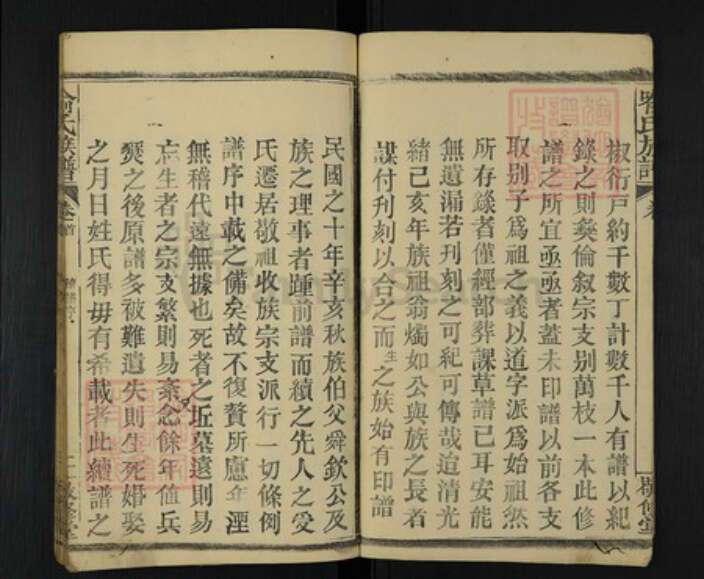 氏族譜
椒衍戸約千數丁計數千人有譜以紀
錄之則彝倫叙宗支别萬枝一本此修
譜之所宜亟亟者蓋未印譜以前各支
取别子爲祖之義以道字派爲始祖然
所存錄者僅經部葬課草譜已耳安能
無遺漏若刋刻之可紀可傳哉追清光
緒己亥年族祖翁燭如公與族之長者
謀付刋刻以合之而生之族始有印譜
民國之十年辛亥秋族伯父舜欽公及
族之理事者踵前譜而續之先人之受
氏遷居敬祖收族宗支派行一切條例
譜序中載之備矣故不復贅所慮年湮
無稽代遠無據也死者之坵墓遠則易
忘生者之宗支繁則易紊念餘年値兵
燹之後原譜多被難遺失則生死婚娶
之月日姓氏得毋有希載者此續譜之
氏族譜
卷首